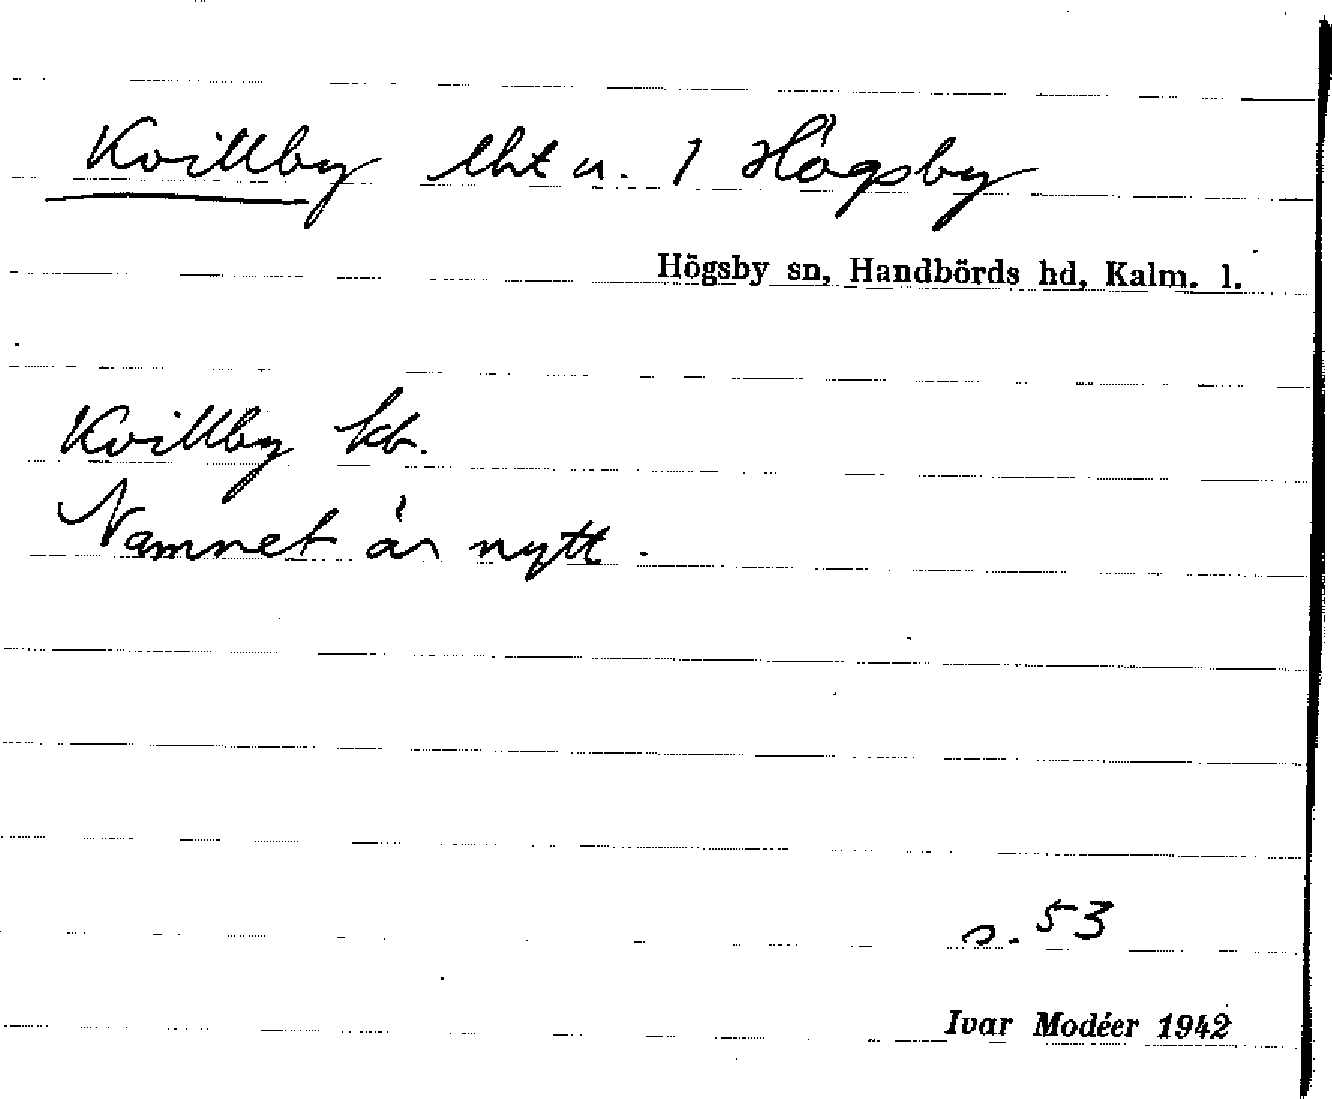 Kvillby lht u. 1 Högsby
Högsby sn, Handbörds hd, Kalm. l.
Kvillby kb.
Namnet är nytt.
s. 53
Ivar Modéer 1942